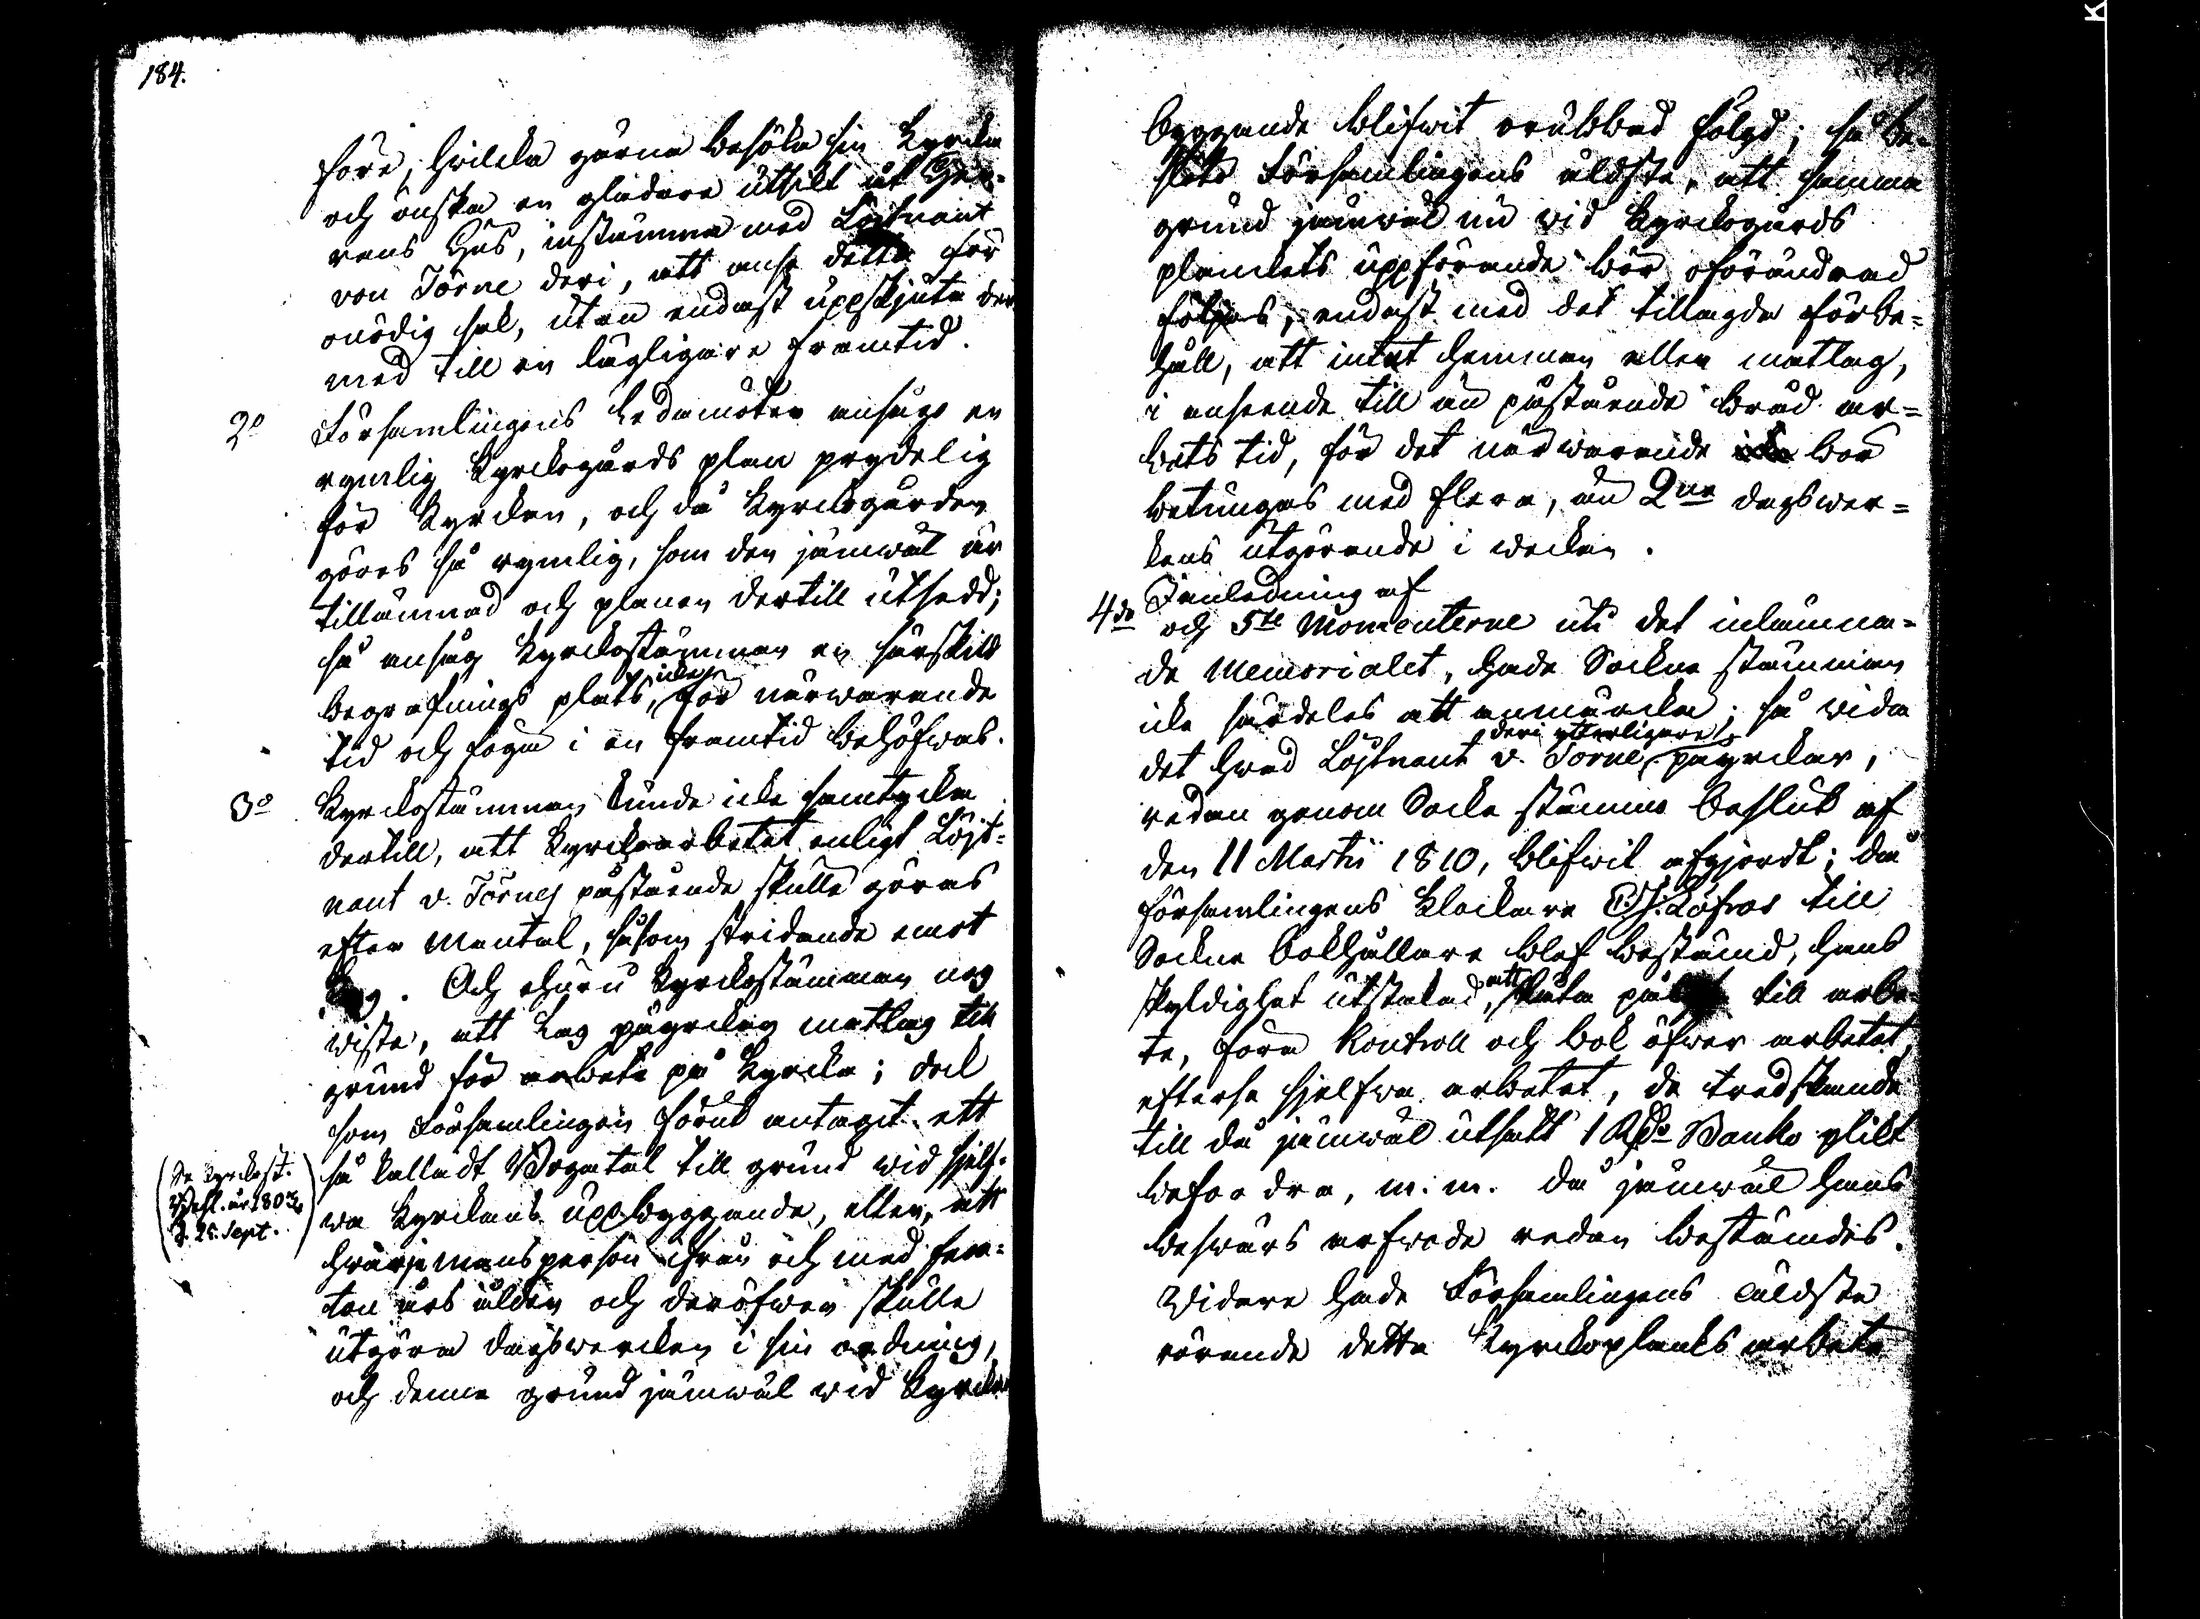 184.
före, hvilka gärna besöka sin kyrka
och önska en gladare utsikt åt Her-
rans Hus, instämma med Löjtnant
von Törne deri, att anse detta för
onödig sak, utan endast uppskjuta der
med till en lägligare framtid.
2o Församlingens Ledamöter ansågo en
rymlig kyrkogårds plan prydelig
för kyrkan, och då kyrkogården
göres så rymlig, som den jämwäl är
tillämnad och planen dertill utsedd;
så ansåg kyrkostämman en särskild
begrafnings plats, icke för närwarande
tid och foga i en framtid behöfwas.
3o Kyrkostämman kunde icke samtycka
dertill, att kyrkoarbetet enligt Löjt-
nant v. Törnes påstående skulle göras
efter Mantal, såsom stridande emot
Lag. Och ehuru kyrkostämman nog
wiste, att Lag påyrkar matlag till
grund för arbete på kyrka; dock
som Församlingen förut antagit ett
så kalladt Rogatal till grund wid sjelf-
(Se kyrkost.
Besl. år 1803
d. 25. Sept.)
wa kyrkans uppbyggande, eller, att
hwarje mansperson ifrån och med fem-
ton års ålder och deröfwer skulle
utgöra dagswerken i sin ordning,
och denna grund jämwäl wid kyrkans
byggande blifwit orubbad följd; så be-
slöto Församlingens äldste, att samma
grund jämwäl nu wid kyrkogårds
plankets uppförande bör oförändrad
följas, endast med det tillagda förbe-
håll, att intet hemman eller matlag,
i anseende till nu påstående bråd ar-
bets tid, för det närwarande bör
betungas med flera, än 2ne dagswer-
kens utgörande i weckan.
I anledning af
4de och 5te Momenterne uti det inlämna-
de Memorialet, hade Sockne stämman
icke särdeles att anmärka; så wida
det hwad Löjtnant v. Törne deri ytterligare påyrkar,
redan genom Socke stämmo beslut af
den 11 Martii 1810, blifwit afgjordt; då
församlingens klockare Löfros till
Sockne bokhållare blef bestämd, hans
skyldighet utstakad, att till arbe-
te, föra kontroll och bok öfwer arbetet,
efterse sjelfwa arbetet, de tredskande
till då jämwäl utsatt 1 Rds Banko plikt
befordra, m. m. då jämwäl hans
beswärs arfwode redan bestämdes.
Widare hade Församlingens äldste
rörande detta kyrkoplanks arbete